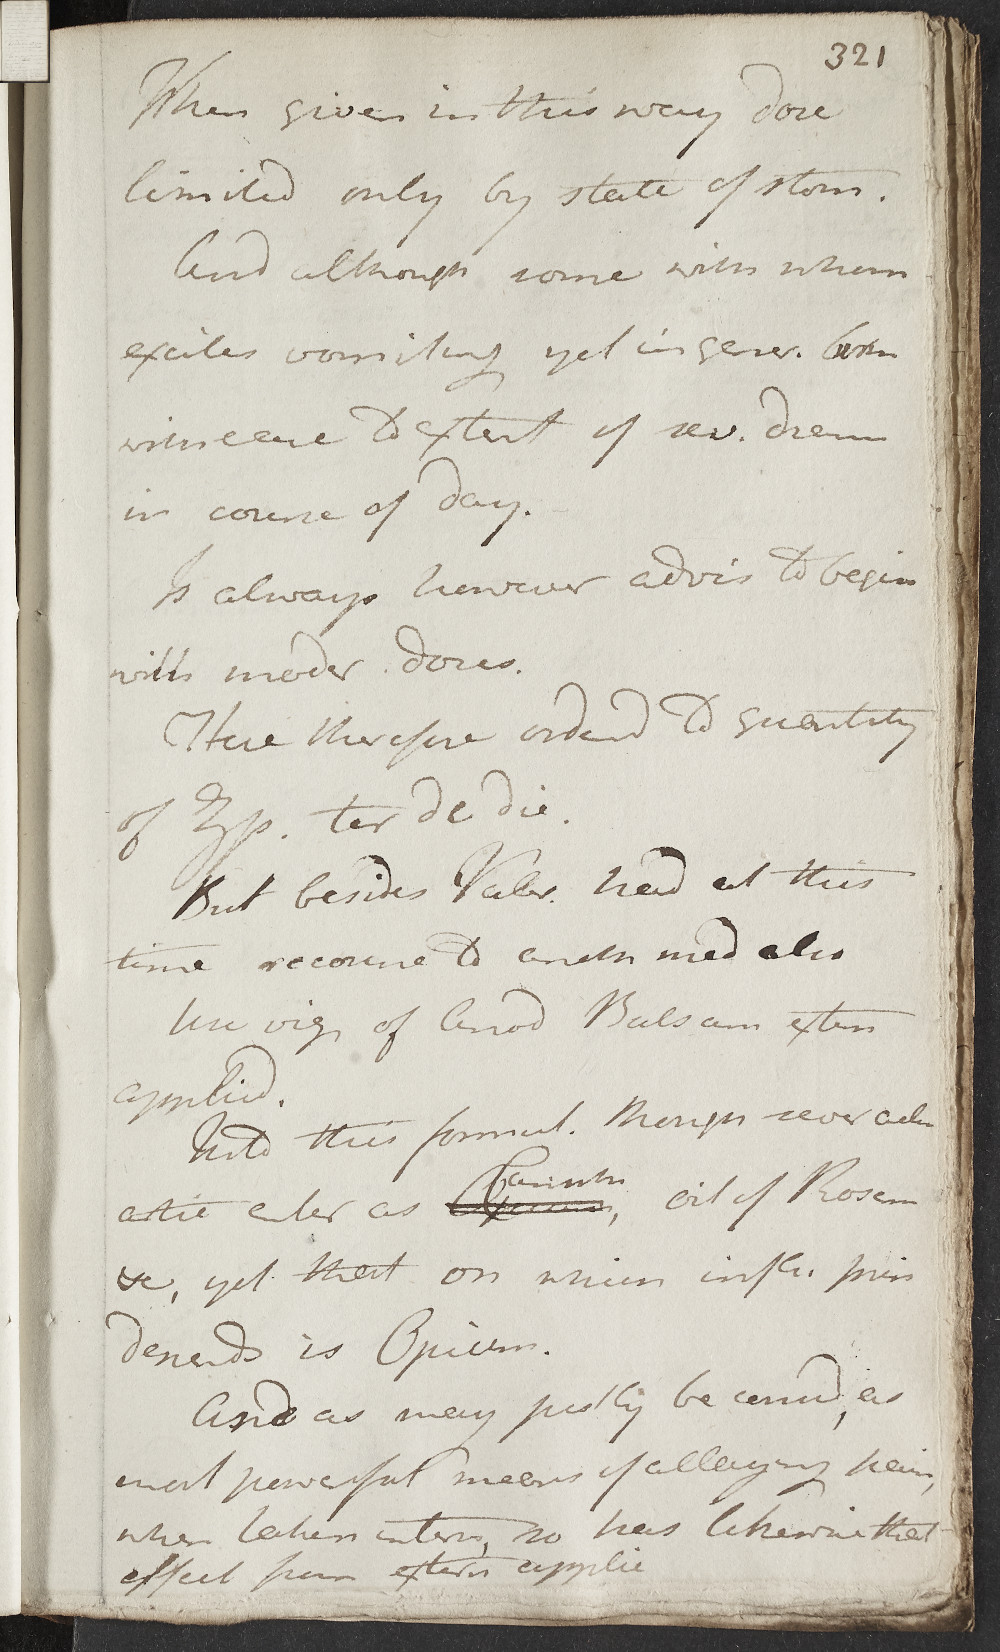 321
When given in this way dose
limited only by state of stom.
And although some with whom
excites vomiting yet in gener. born
with ease to extent of sev. dram
in course of day.
Is always however advis to begin
with moder. doses.
Here therefore orderd to quantity
of ʒſs. ter de die.
But besides Valer. had at this
time recourse to anoth med also
Use viz of Anod Balsam extern
applied.
Into this formul. though sever
artic enter as Camph, oil of Rosem
&c, yet that on which infl. prin
depends is Opium.
And as may justly be consid, as
most powerful means of allaying pain,
when taken intern, so has likewise that
effect from extern applic